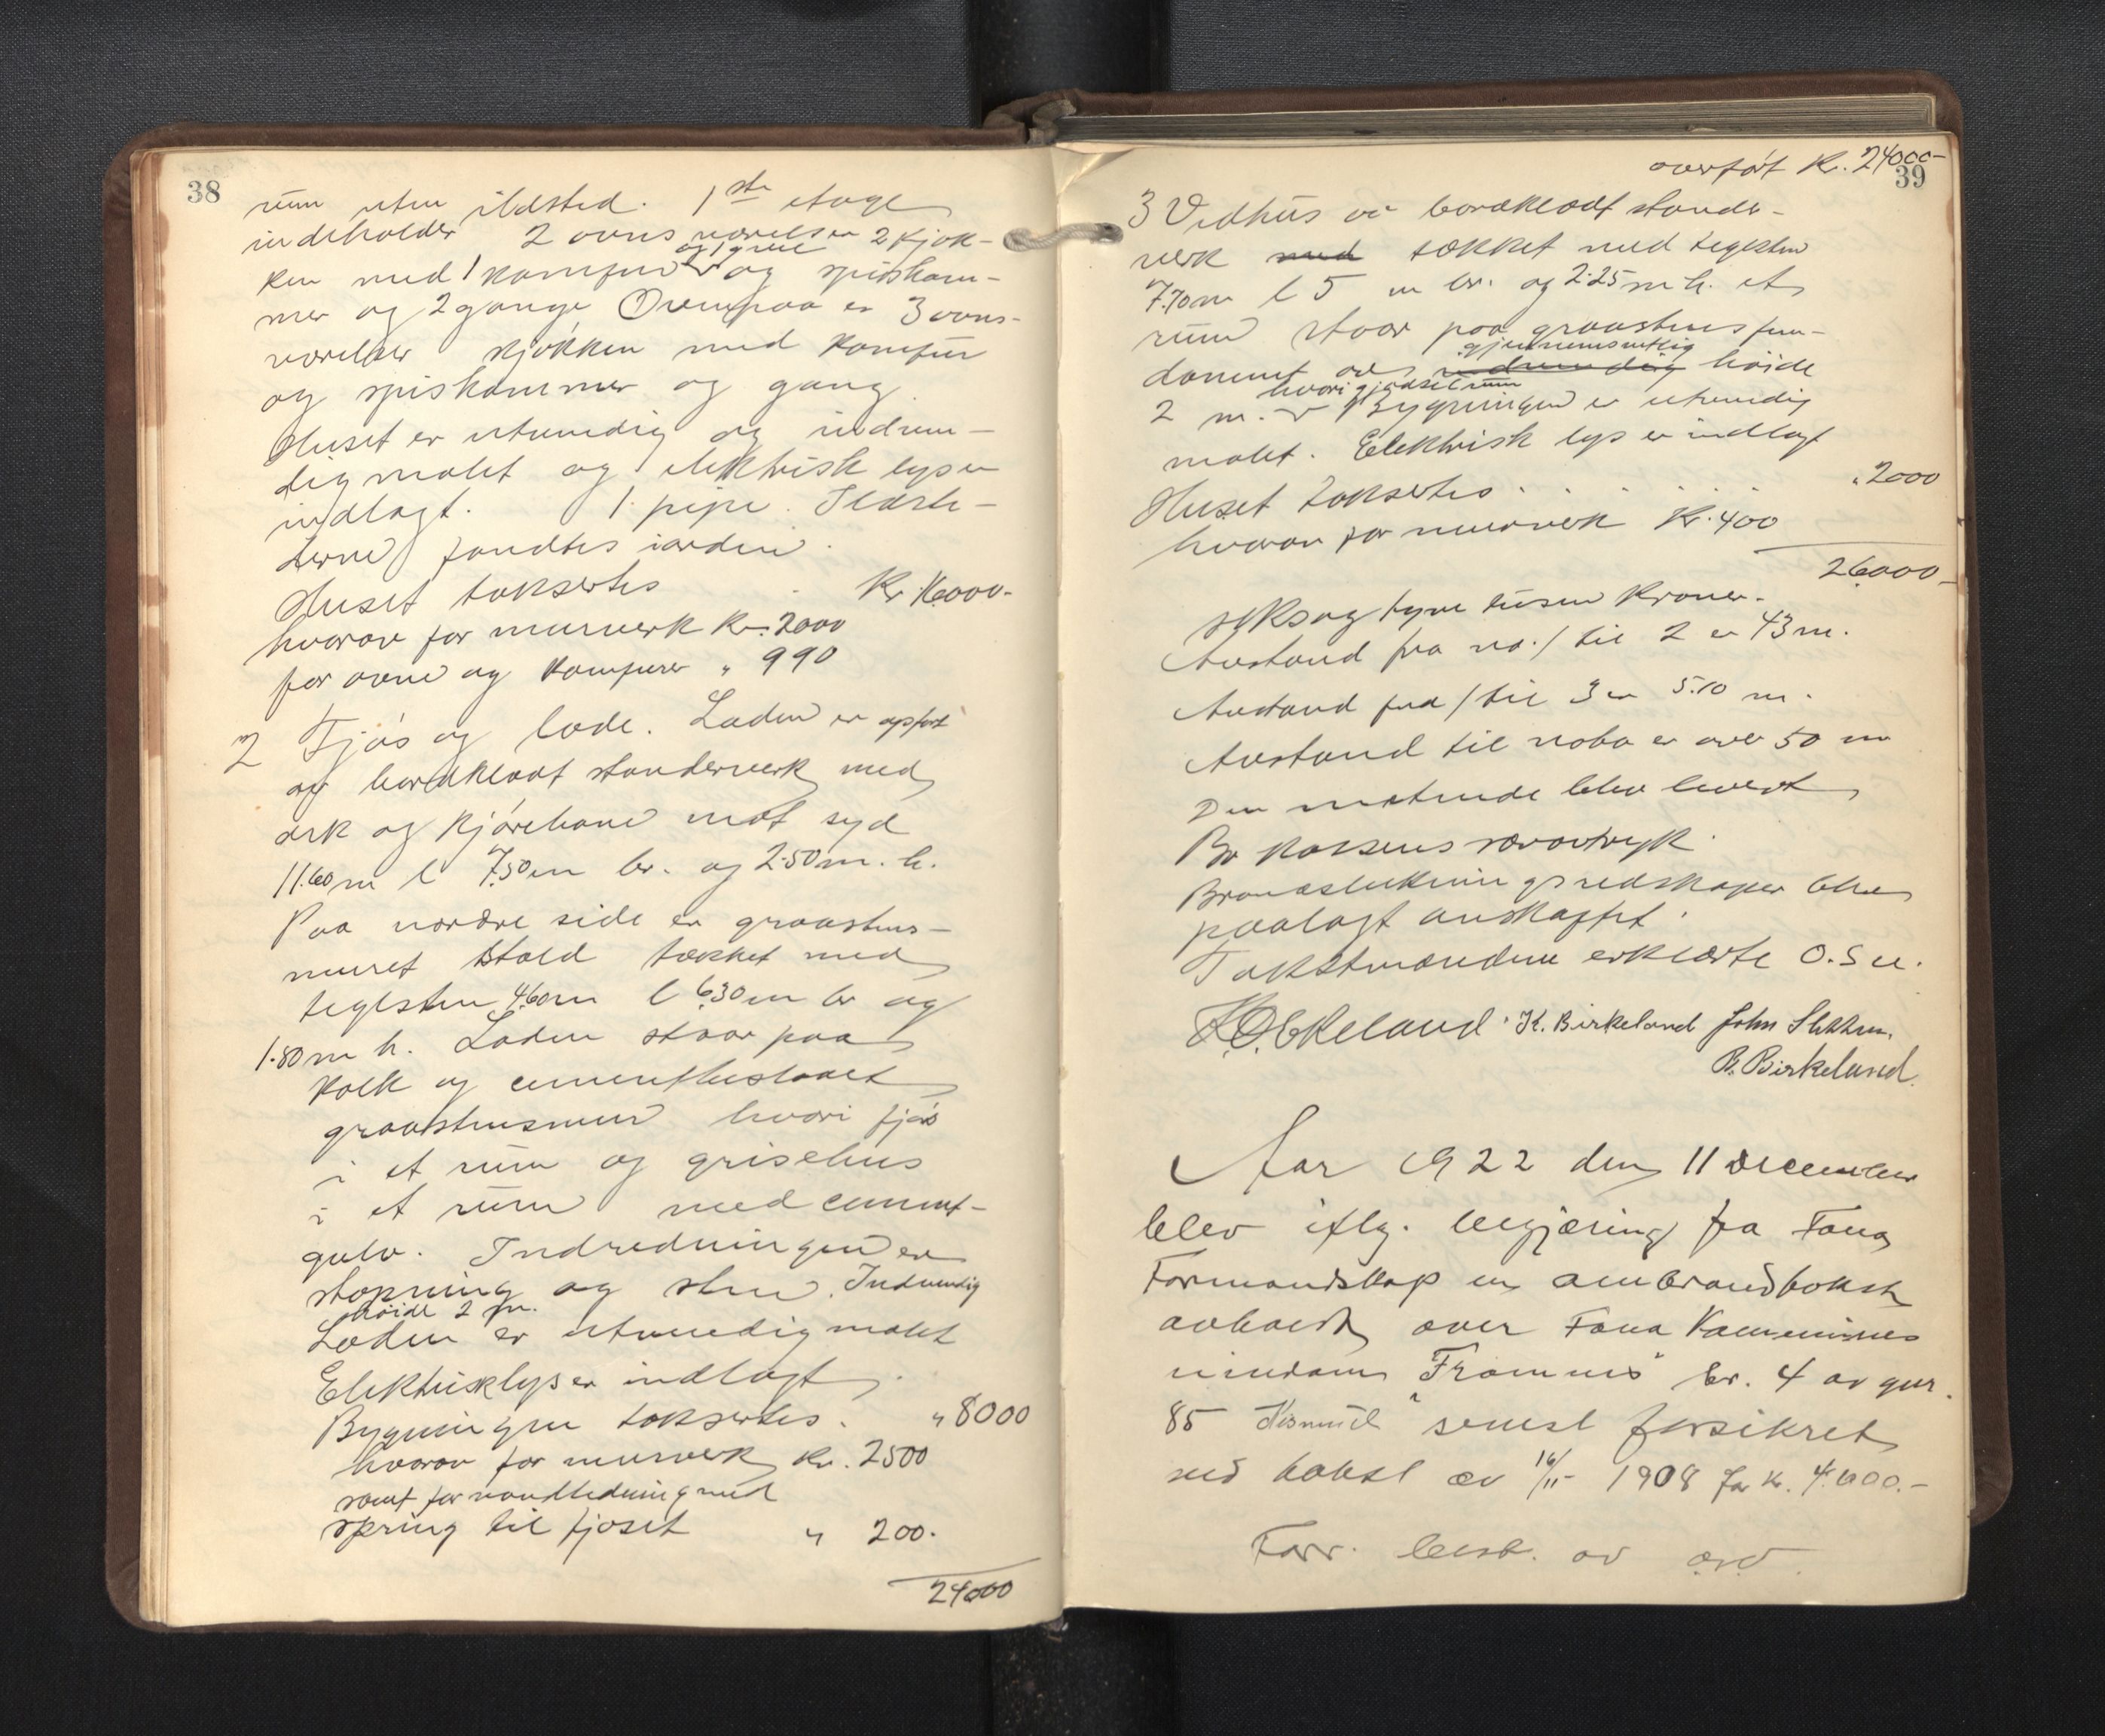 38
rum uten ildsted. 1ste etage
indeholder 2 ovns værelser 2 kjøk-
og 1 grue
ken med 1 komfur og spiskam-
mer og 2 gange Ovenpaa er 3 ovns-
værelser kjøkken med komfur
og spiskammer og gang.
Huset er utvendig og indven-
dig malet og elektrisk lys er
indlagt. 1 pipe. Ildste-
derne fandtes iorden.
Huset taksertes Kr. 16000.-
hvorav for murverk Kr. 2000
for ovne og komfurer " 990
2 Fjøs og lade. Laden er opført
av bordklædt stenderverk med
ark og kjørebane mot syd
11.60 m l 7.50 m br. og 2.50 m. h.
Paa nordre side er graastens-
muret stald tækket med
teglsten 4.60 m l 6.30 m br og
1.80 m h. Laden staar paa
kalk og cementhuslaaet
graastensmur hvori fjøs
i et rum og grisehus
i et rum med cement-
gulv. Indredningen er
stopning og sten. Indvendig
høide 2 m.
Laden er utvendig malet
Elektrisk lys er indlagt.
Bygningen taksertes. " 8000
hvorav for murverk Kr. 2500
samt for vandledning med
spring til fjøset " 200.
24000
overført Kr. 24000-
39
3 Vedhus av bordklædt stender-
verk med tækket med teglsten
7.70 m l 5 m br. og 2.25 m h. et
rum staar paa graastens fun-
gjennemsnitlig
dament av indvendig høide
hvori gjødselrum
2 m. Bygningen er utvendig
malet. Elektrisk lys er indlagt
Huset taksertes . . . . . " 2000
hvorav for murverk Kr. 400
26000-
seksogtyve tusen Kroner.
Avstand fra no. 1 til 2 er 43 m.
Avstand fra 1 til 3 er 5.10 m.
Avstand til nabo er over 50 m
Den møtende blev levert
Br kassens særavtryk.
Brandslukningsredskaper blev
paalagt anskaffet.
Takstmændene erklærte O.S.v.
K. O. Ekeland. K. Birkeland John
B. Birkeland.
Aar 1922 den 11 December
blev iflg. begjæring fra Fana
Formandskap en ombrandtakst
avholdt over Fana Kommunes
eiendom "Framnes" br. 4 av gnr.
85 senest forsikret
ved takst av 16/11- 1908 for kr. 4.600.-
Forr. best. av ord.